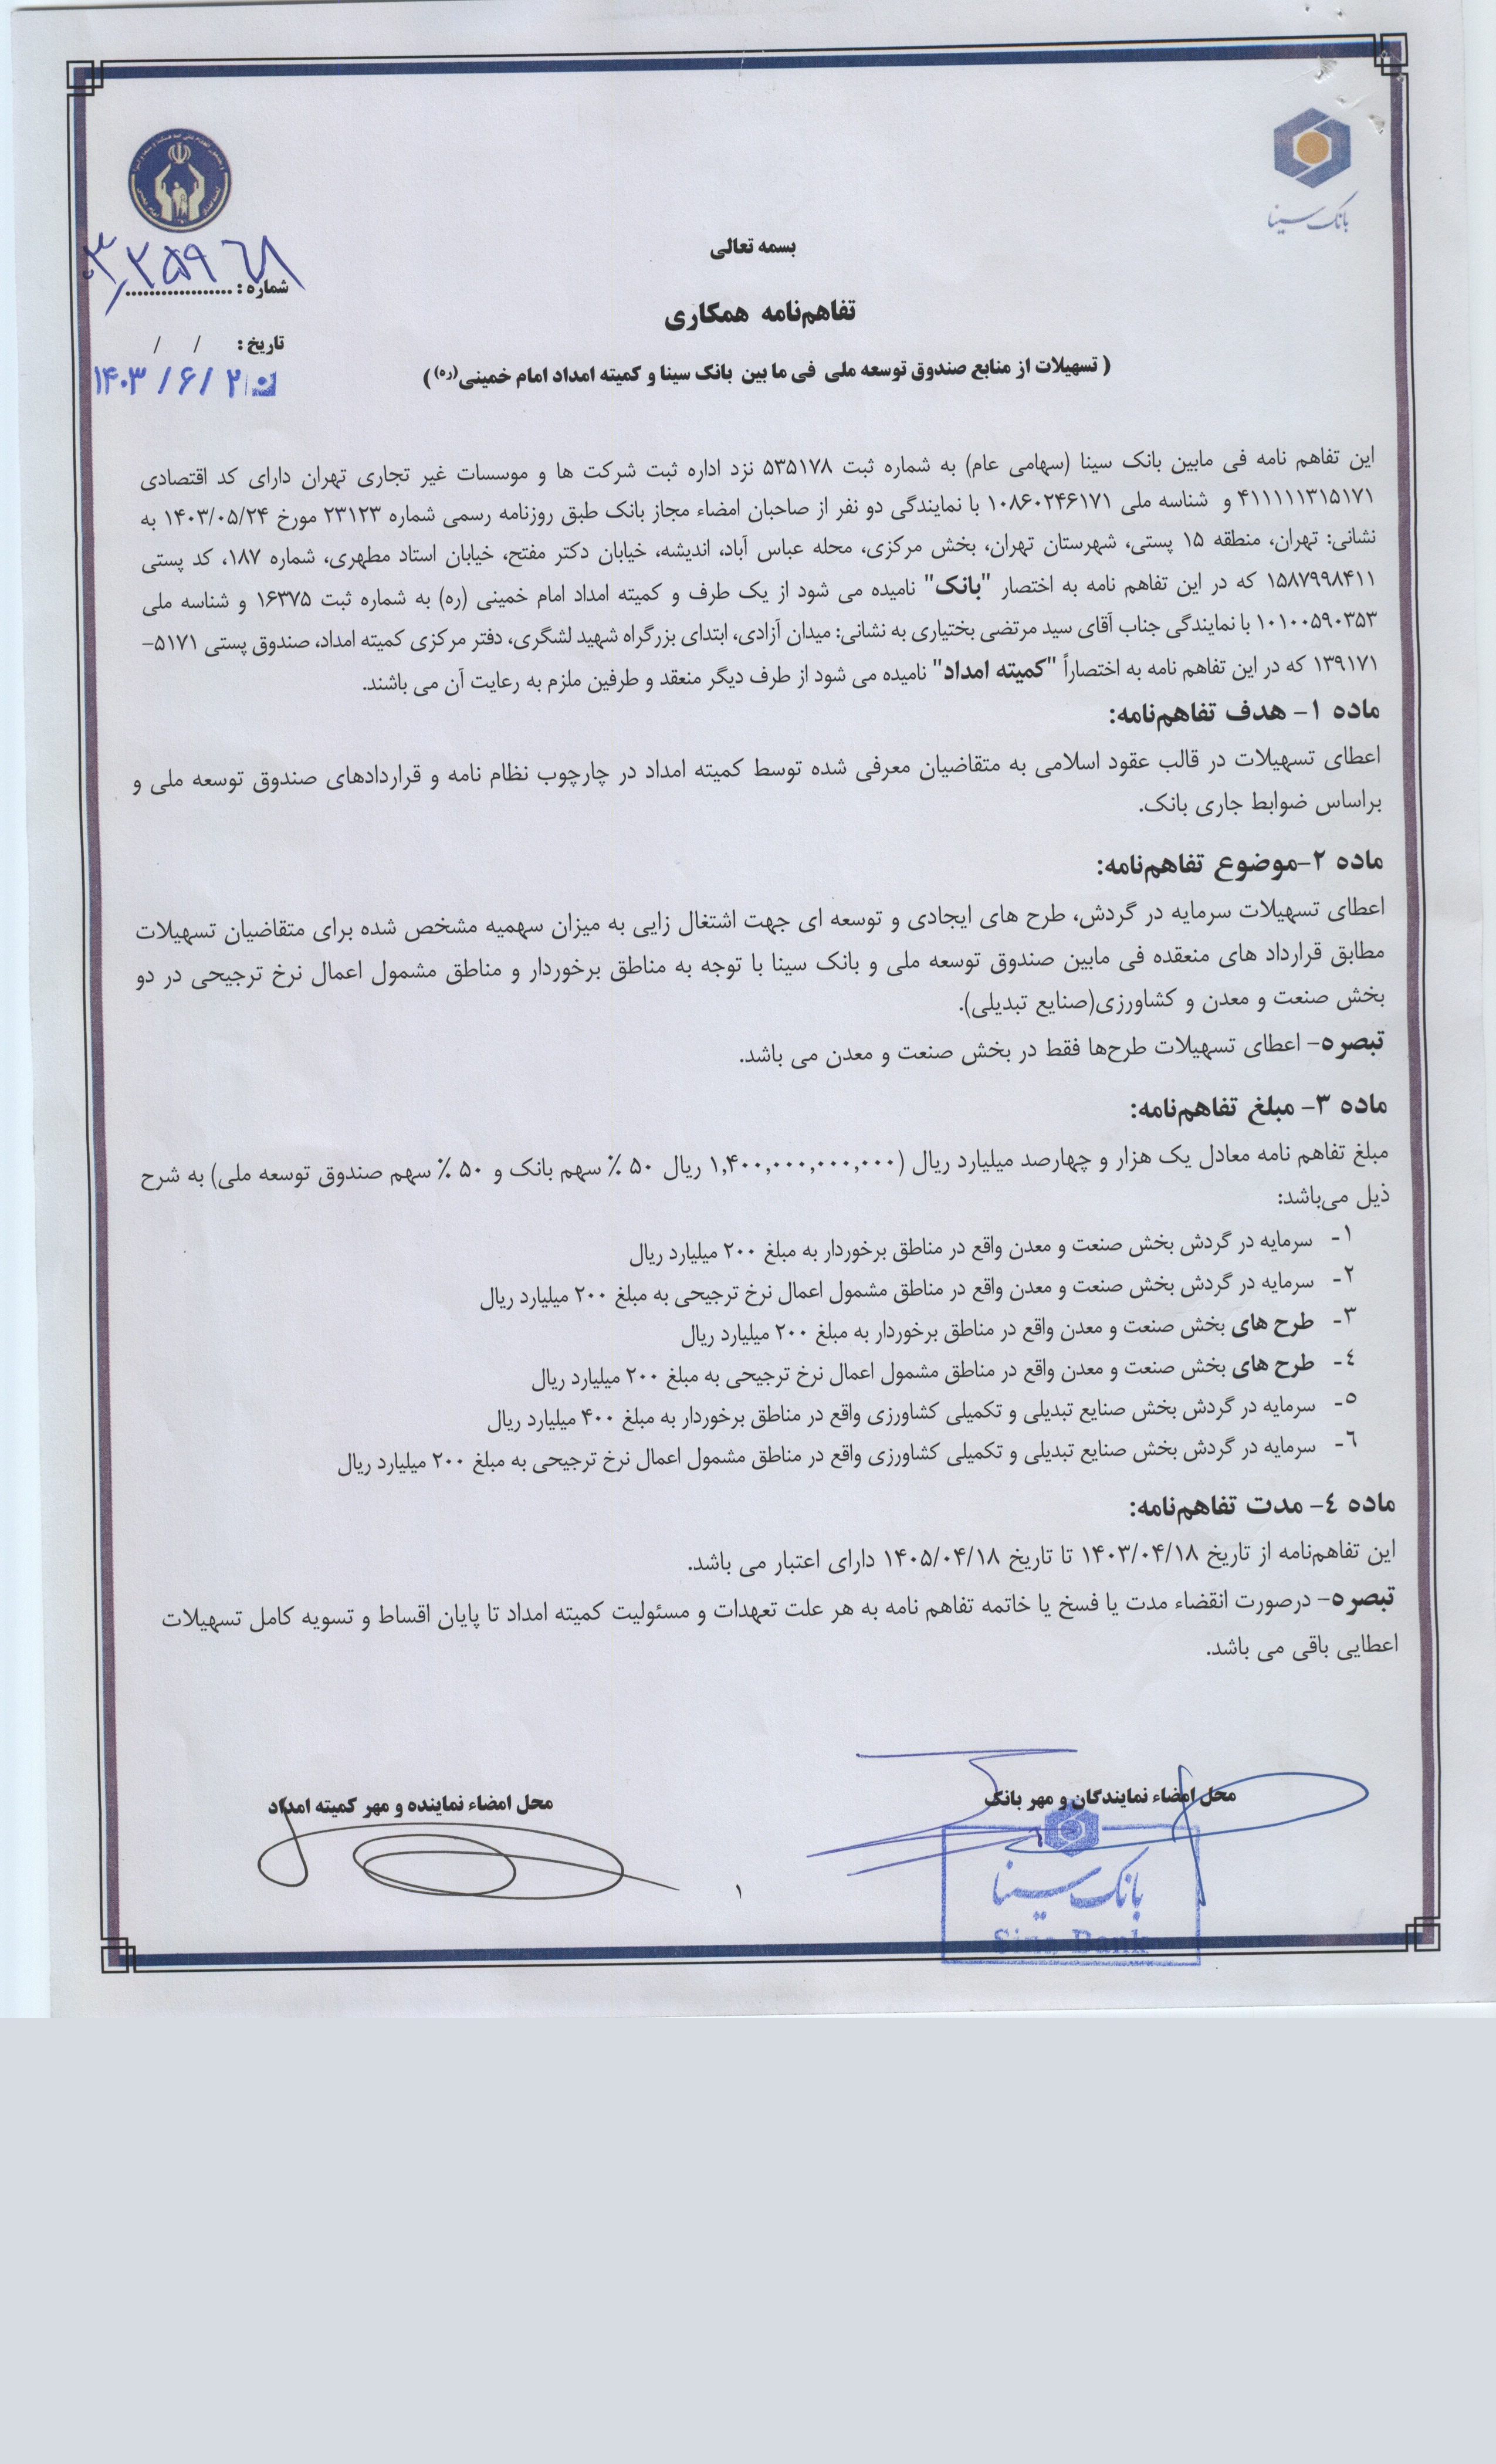 بانک سینا
بسمه تعالی
شماره : ..................
تفاهم‌نامه همکاری
تاریخ : / /
( تسهیلات از منابع صندوق توسعه ملی فی ما بین بانک سینا و کمیته امداد امام خمینی(ره) )
این تفاهم نامه فی مابین بانک سینا (سهامی عام) به شماره ثبت ۵۳۵۱۷۸ نزد اداره ثبت شرکت ها و موسسات غیر تجاری تهران دارای کد اقتصادی
۴۱۱۱۱۱۳۱۵۱۷۱ و شناسه ملی ۱۰۸۶۰۲۴۶۱۷۱ با نمایندگی دو نفر از صاحبان امضاء مجاز بانک طبق روزنامه رسمی شماره ۲۳۱۲۳ مورخ ۱۴۰۳/۰۵/۲۴ به
نشانی: تهران، منطقه ۱۵ پستی، شهرستان تهران، بخش مرکزی، محله عباس آباد، اندیشه، خیابان دکتر مفتح، خیابان استاد مطهری، شماره ۱۸۷، کد پستی
۱۵۸۷۹۹۸۴۱۱ که در این تفاهم نامه به اختصار "بانک" نامیده می شود از یک طرف و کمیته امداد امام خمینی (ره) به شماره ثبت ۱۶۳۷۵ و شناسه ملی
۱۰۱۰۰۵۹۰۳۵۳ با نمایندگی جناب آقای سید مرتضی بختیاری به نشانی: میدان آزادی، ابتدای بزرگراه شهید لشگری، دفتر مرکزی کمیته امداد، صندوق پستی ۵۱۷۱-
۱۳۹۱۷۱ که در این تفاهم نامه به اختصاراً "کمیته امداد" نامیده می شود از طرف دیگر منعقد و طرفین ملزم به رعایت آن می باشند.
ماده ۱- هدف تفاهم‌نامه:
اعطای تسهیلات در قالب عقود اسلامی به متقاضیان معرفی شده توسط کمیته امداد در چارچوب نظام نامه و قراردادهای صندوق توسعه ملی و
براساس ضوابط جاری بانک.
ماده ۲-موضوع تفاهم‌نامه:
اعطای تسهیلات سرمایه در گردش، طرح های ایجادی و توسعه ای جهت اشتغال زایی به میزان سهمیه مشخص شده برای متقاضیان تسهیلات
مطابق قرارداد های منعقده فی مابین صندوق توسعه ملی و بانک سینا با توجه به مناطق برخوردار و مناطق مشمول اعمال نرخ ترجیحی در دو
بخش صنعت و معدن و کشاورزی(صنایع تبدیلی).
تبصره- اعطای تسهیلات طرح‌ها فقط در بخش صنعت و معدن می باشد.
ماده ۳- مبلغ تفاهم‌نامه:
مبلغ تفاهم نامه معادل یک هزار و چهارصد میلیارد ریال (۱,۴۰۰,۰۰۰,۰۰۰,۰۰۰ ریال ۵۰ ٪ سهم بانک و ۵۰ ٪ سهم صندوق توسعه ملی) به شرح
ذیل می‌باشد:
۱- سرمایه در گردش بخش صنعت و معدن واقع در مناطق برخوردار به مبلغ ۲۰۰ میلیارد ریال
۲- سرمایه در گردش بخش صنعت و معدن واقع در مناطق مشمول اعمال نرخ ترجیحی به مبلغ ۲۰۰ میلیارد ریال
۳- طرح های بخش صنعت و معدن واقع در مناطق برخوردار به مبلغ ۲۰۰ میلیارد ریال
٤- طرح های بخش صنعت و معدن واقع در مناطق مشمول اعمال نرخ ترجیحی به مبلغ ۲۰۰ میلیارد ریال
۵- سرمایه در گردش بخش صنایع تبدیلی و تکمیلی کشاورزی واقع در مناطق برخوردار به مبلغ ۴۰۰ میلیارد ریال
٦- سرمایه در گردش بخش صنایع تبدیلی و تکمیلی کشاورزی واقع در مناطق مشمول اعمال نرخ ترجیحی به مبلغ ۲۰۰ میلیارد ریال
ماده ٤- مدت تفاهم‌نامه:
این تفاهم‌نامه از تاریخ ۱۴۰۳/۰۴/۱۸ تا تاریخ ۱۴۰۵/۰۴/۱۸ دارای اعتبار می باشد.
تبصره- درصورت انقضاء مدت یا فسخ یا خاتمه تفاهم نامه به هر علت تعهدات و مسئولیت کمیته امداد تا پایان اقساط و تسویه کامل تسهیلات
اعطایی باقی می باشد.
محل امضاء نمایندگان و مهر بانک
محل امضاء نماینده و مهر کمیته امداد
بانک سینا
Sina Bank
۱